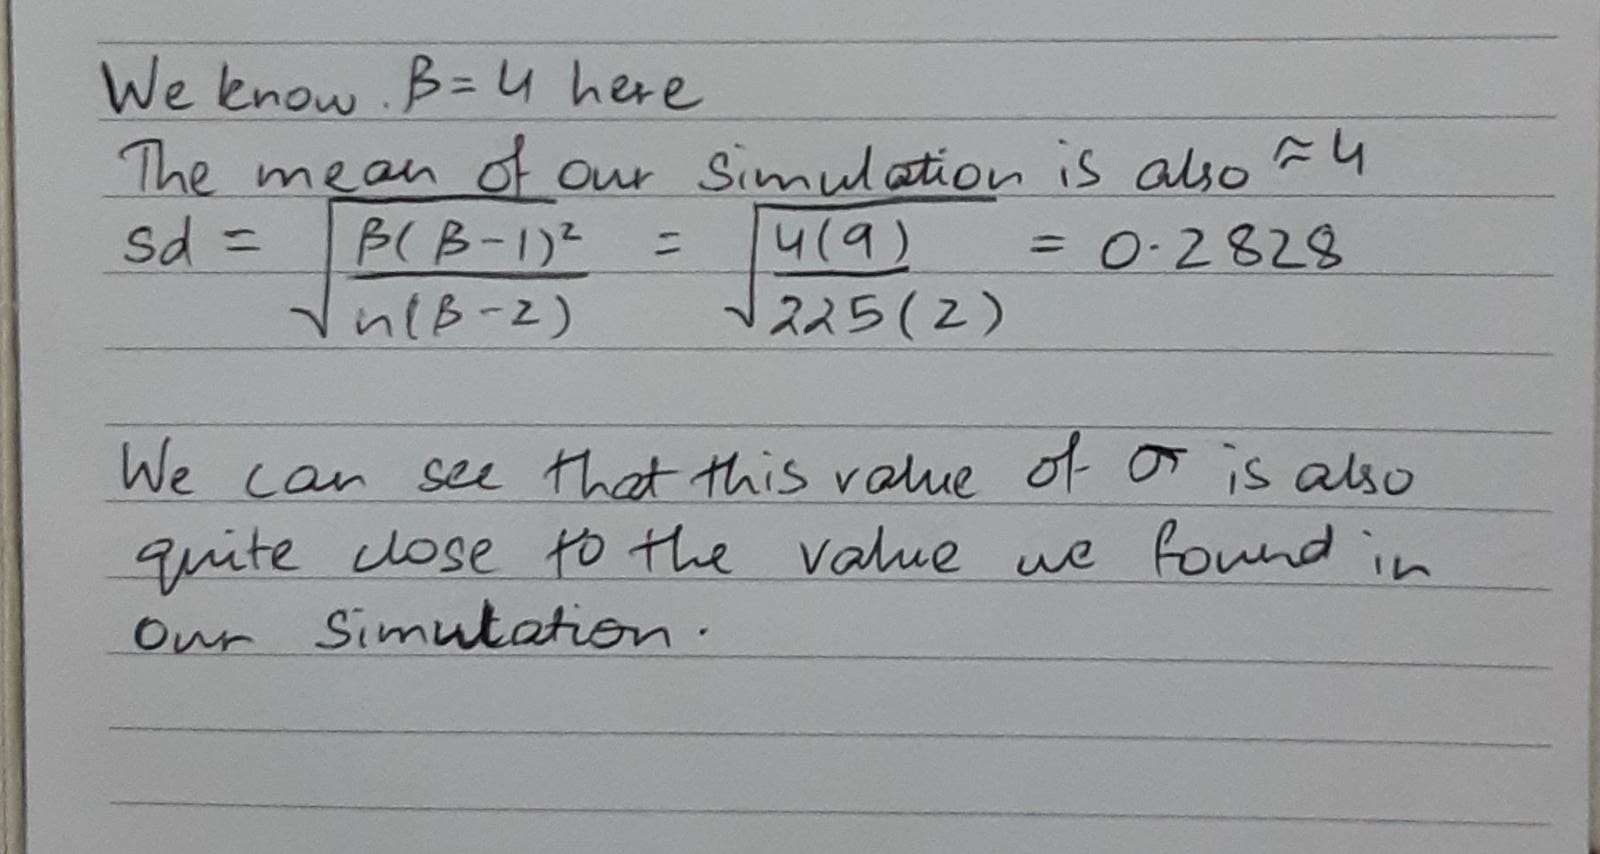 We know. β = 4 here
The mean of our simulation is also ≈ 4
sd = √(β(β-1)² / n(β-2)) = √(4(9) / 225(2)) = 0.2828
We can see that this value of σ is also
quite close to the value we found in
our simulation.